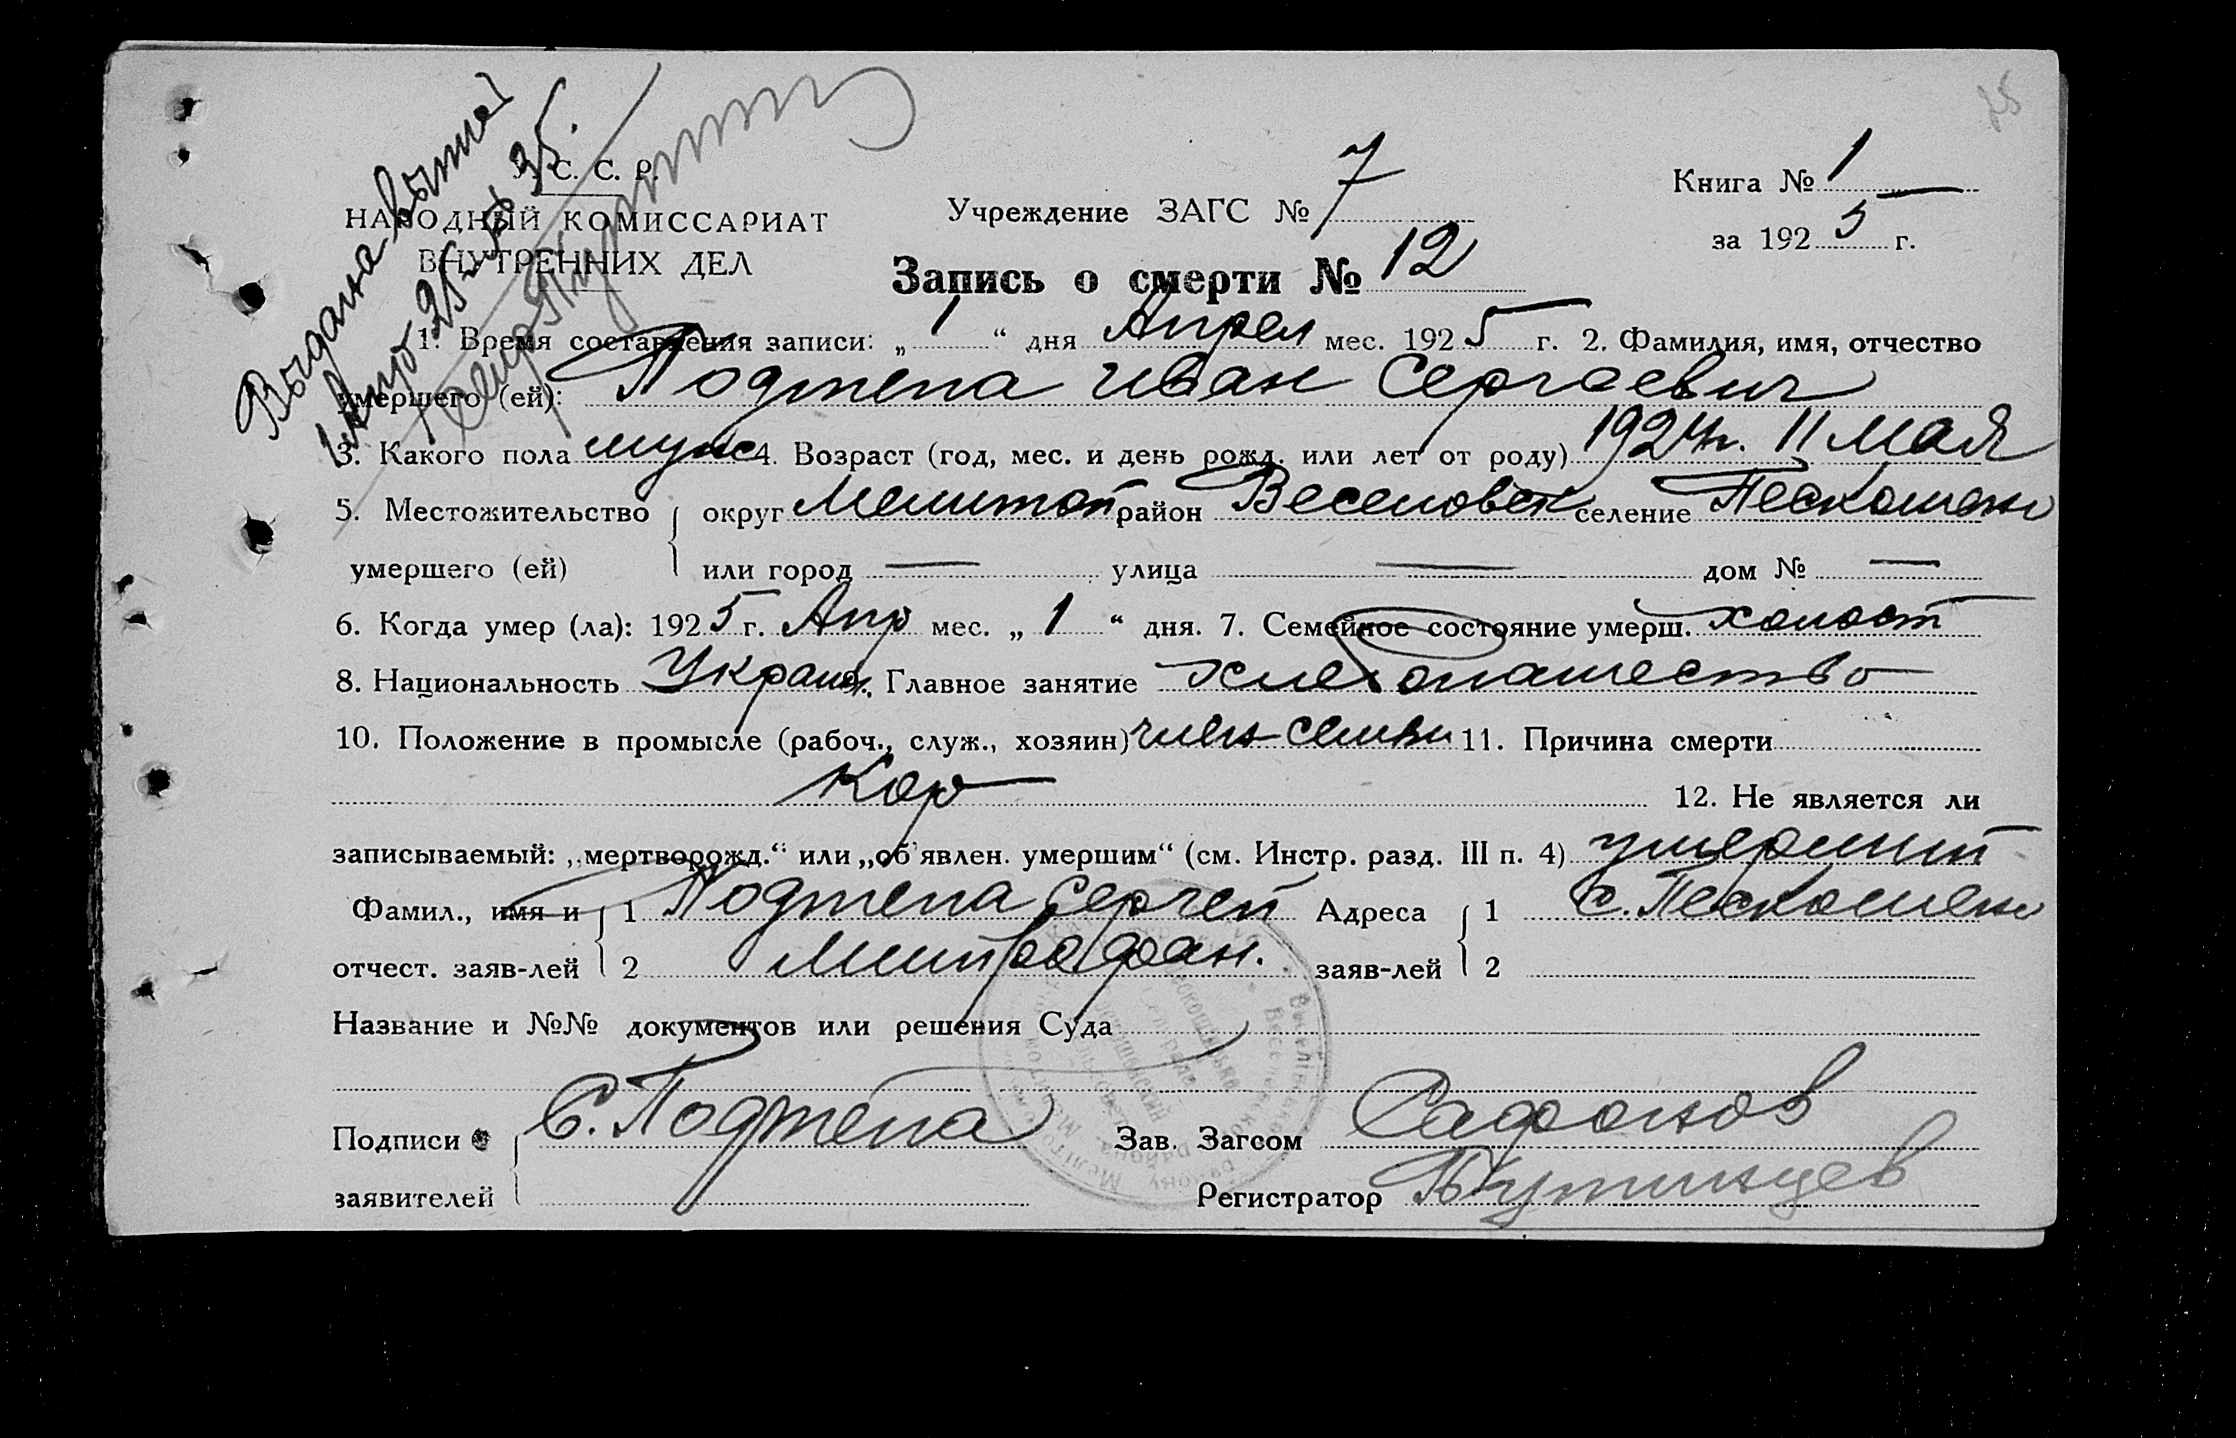 Выдана выпись
25 35.
75
У. С. С. Р.
НАРОДНЫЙ КОМИССАРИАТ
ВНУТРЕННИХ ДЕЛ
Учреждение ЗАГС № 7
Книга № 1
за 1925 г.
Запись о смерти № 12
1. Время составления записи: „1“ дня Апрел мес. 1925 г. 2. Фамилия, имя, отчество
умершего (ей): Подтепа Иван Сергаевич
3. Какого пола муж 4. Возраст (год, мес. и день рожд. или лет от роду) 1924 г. 11 мая
5. Местожительство округ Мелитоп район Веселовск селение Пескошено
умершего (ей) или город — улица — дом № —
6. Когда умер (ла): 1925 г. Апр мес. „1“ дня. 7. Семейное состояние умерш. холост
8. Национальность Украин. Главное занятие хлебопашество
10. Положение в промысле (рабоч., служ., хозяин) член семьи 11. Причина смерти
Кор 12. Не является ли
записываемый: „мертворожд.“ или „об'явлен. умершим“ (см. Инстр. разд. III п. 4) умерший
Фамил., имя и 1 Подтепа Сергей Адреса 1 с. Пескошено
отчест. заяв-лей 2 Митрофан. заяв-лей 2
Название и №№ документов или решения Суда
Подписи С. Подтепа Зав. Загсом Сафонов
заявителей Регистратор